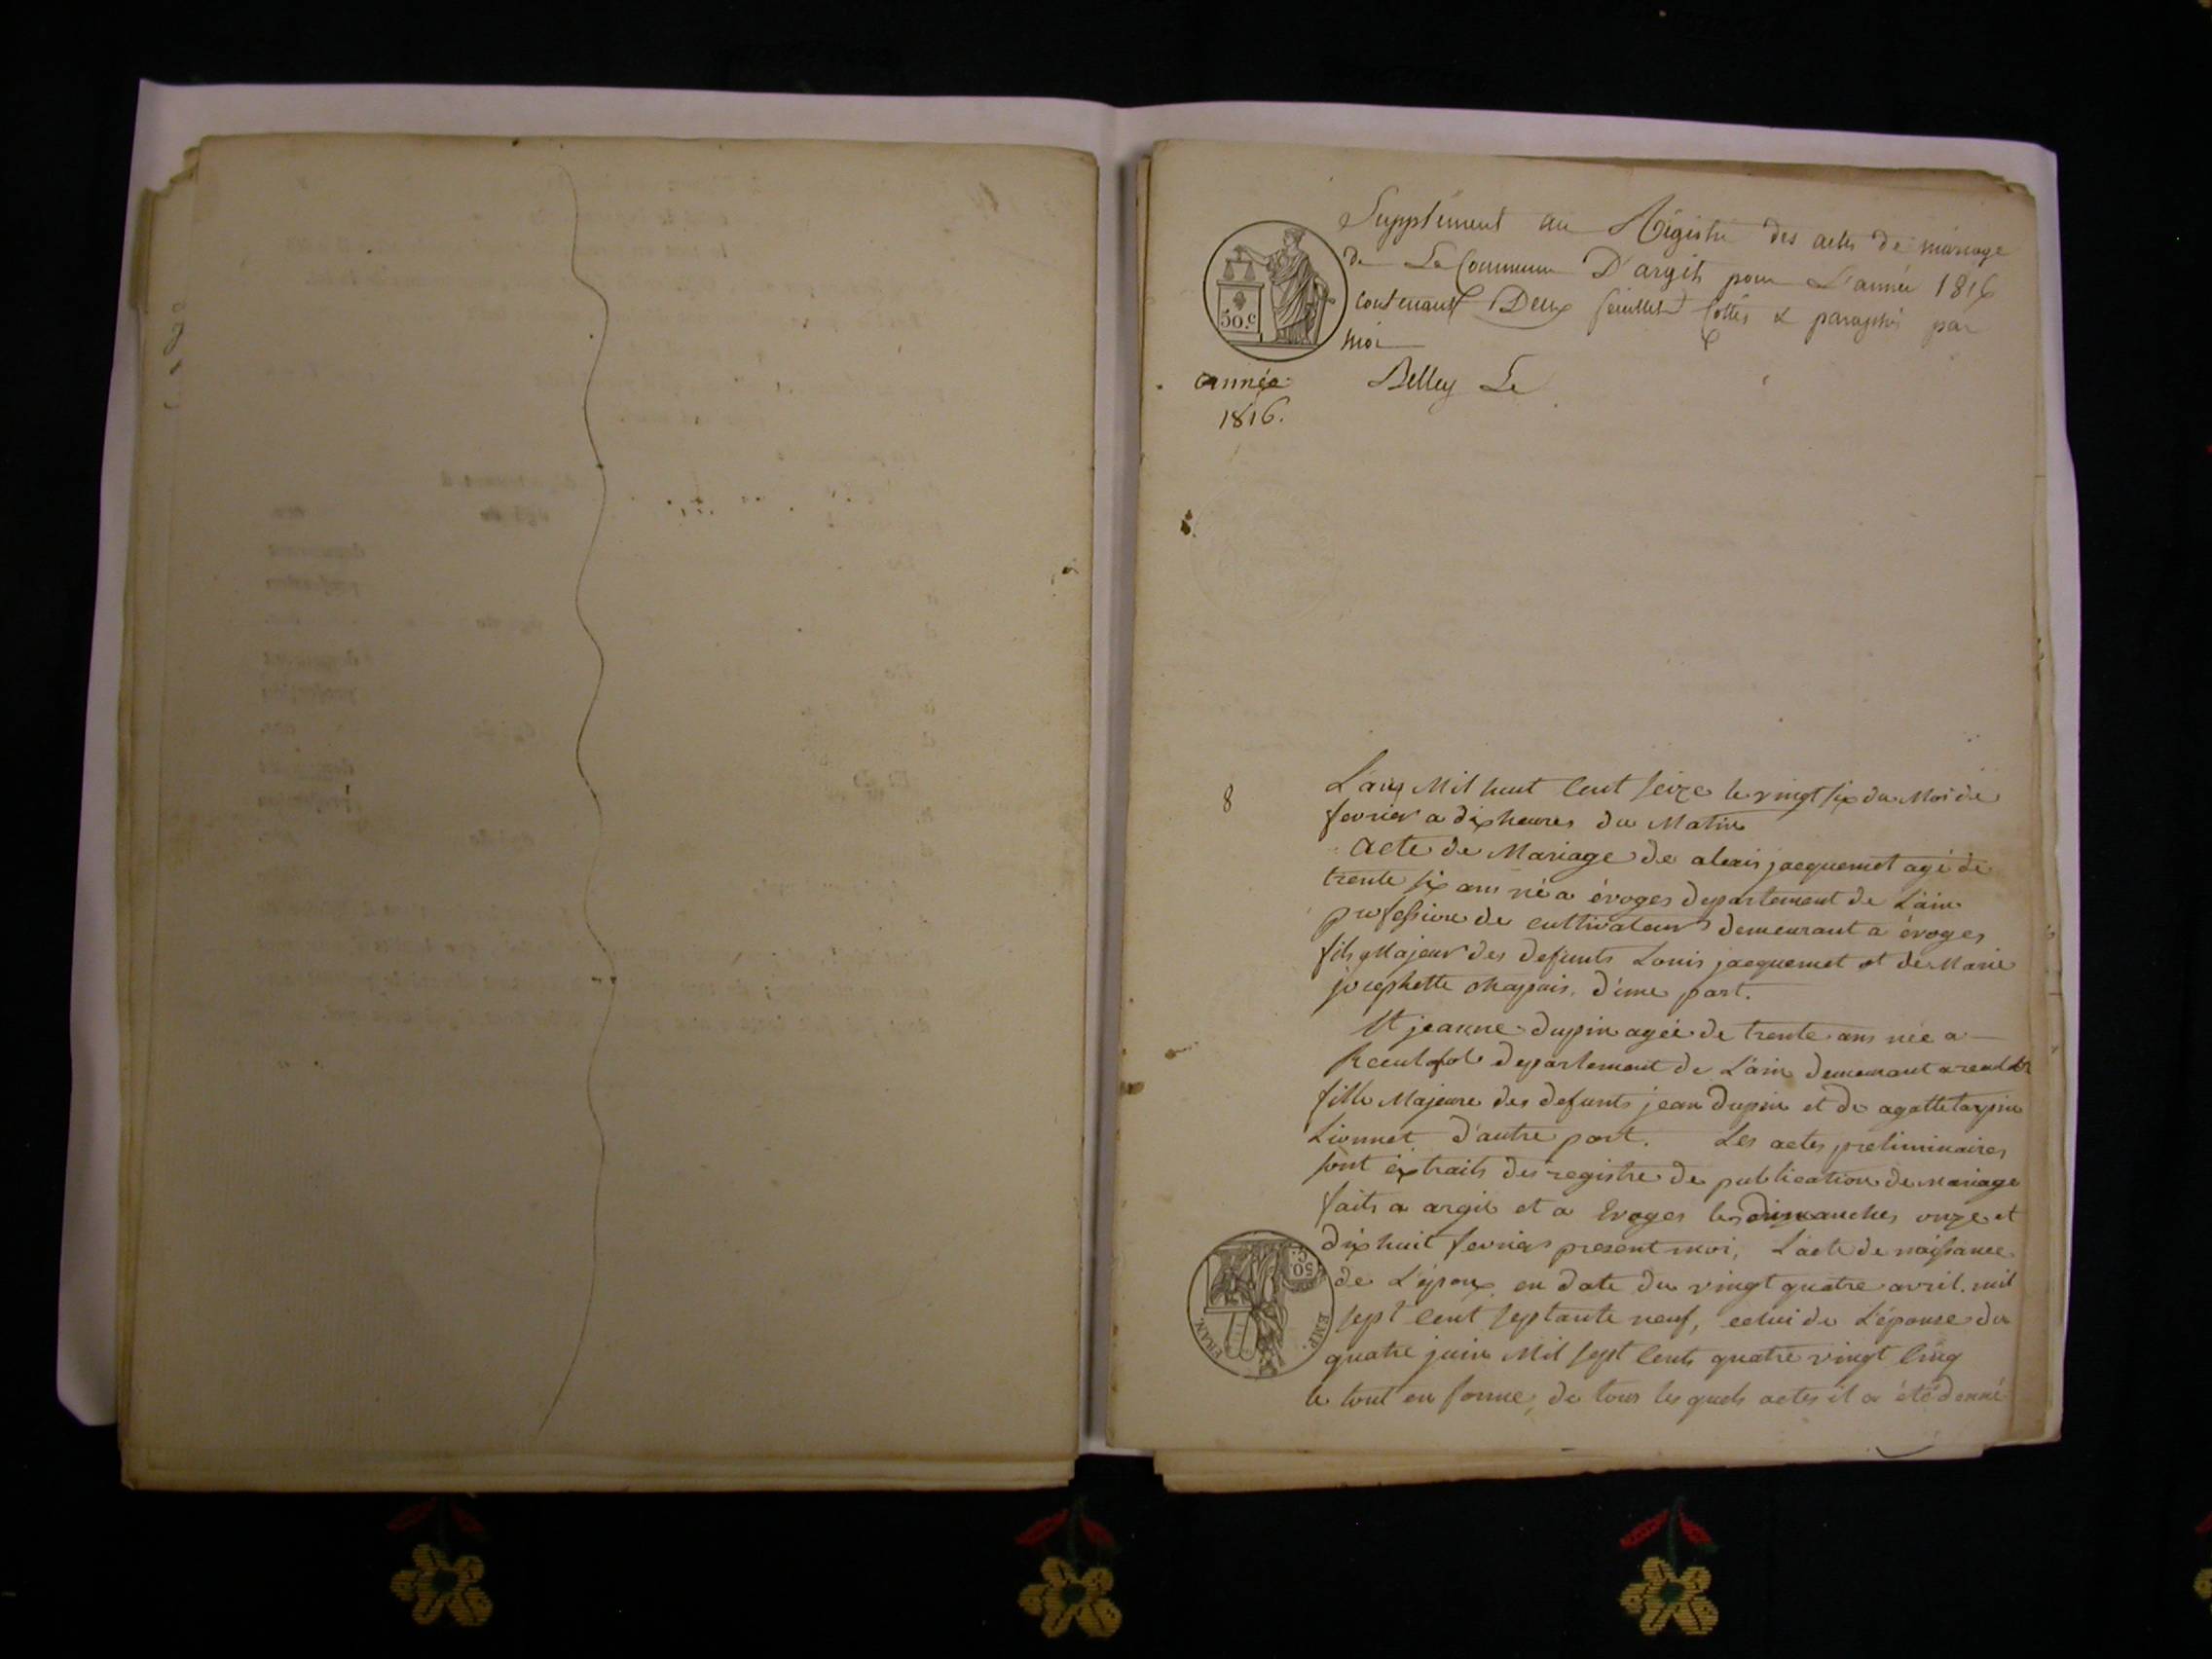 Supplément au Régistre des actes de mariage
de La Commune D'argit pour L'année 1816
Contenant Deux feuillets Cottés & paraphés par
moi
50.c
année
1816.
Belley Le
8
L'an Mil huit Cent seize le vingt six du Moi de
fevrier a dix heures du Matin
acte de Mariage de alexis jacquemet agé de
trente six ans né a évoges departement de L'ain
profession de cultivateur demeurant a évoges
fils Majeur des defunts Louis jacquemet et de Marie
josephette d'une part.
Et jeanne dupin agée de trente ans née a
departement de L'ain demeurant a
fille Majeure des defunts jean Dupin et de agatte
Lionnet d'autre part. Les actes preliminaires
sont éxtraits des registre de publication de Mariage
faits a argit et a Evoges les dimanches onze et
dix huit fevrier present moi, L'acte de naissance
de L'époux en date du vingt quatre avril mil
sept Cent septante neuf, celui de L'épouse du
quatre juin Mil sept Cents quatre vingt Cinq
le tout en forme, de tous les quels actes il a été donné
50 C.
EMP.
FRAN.